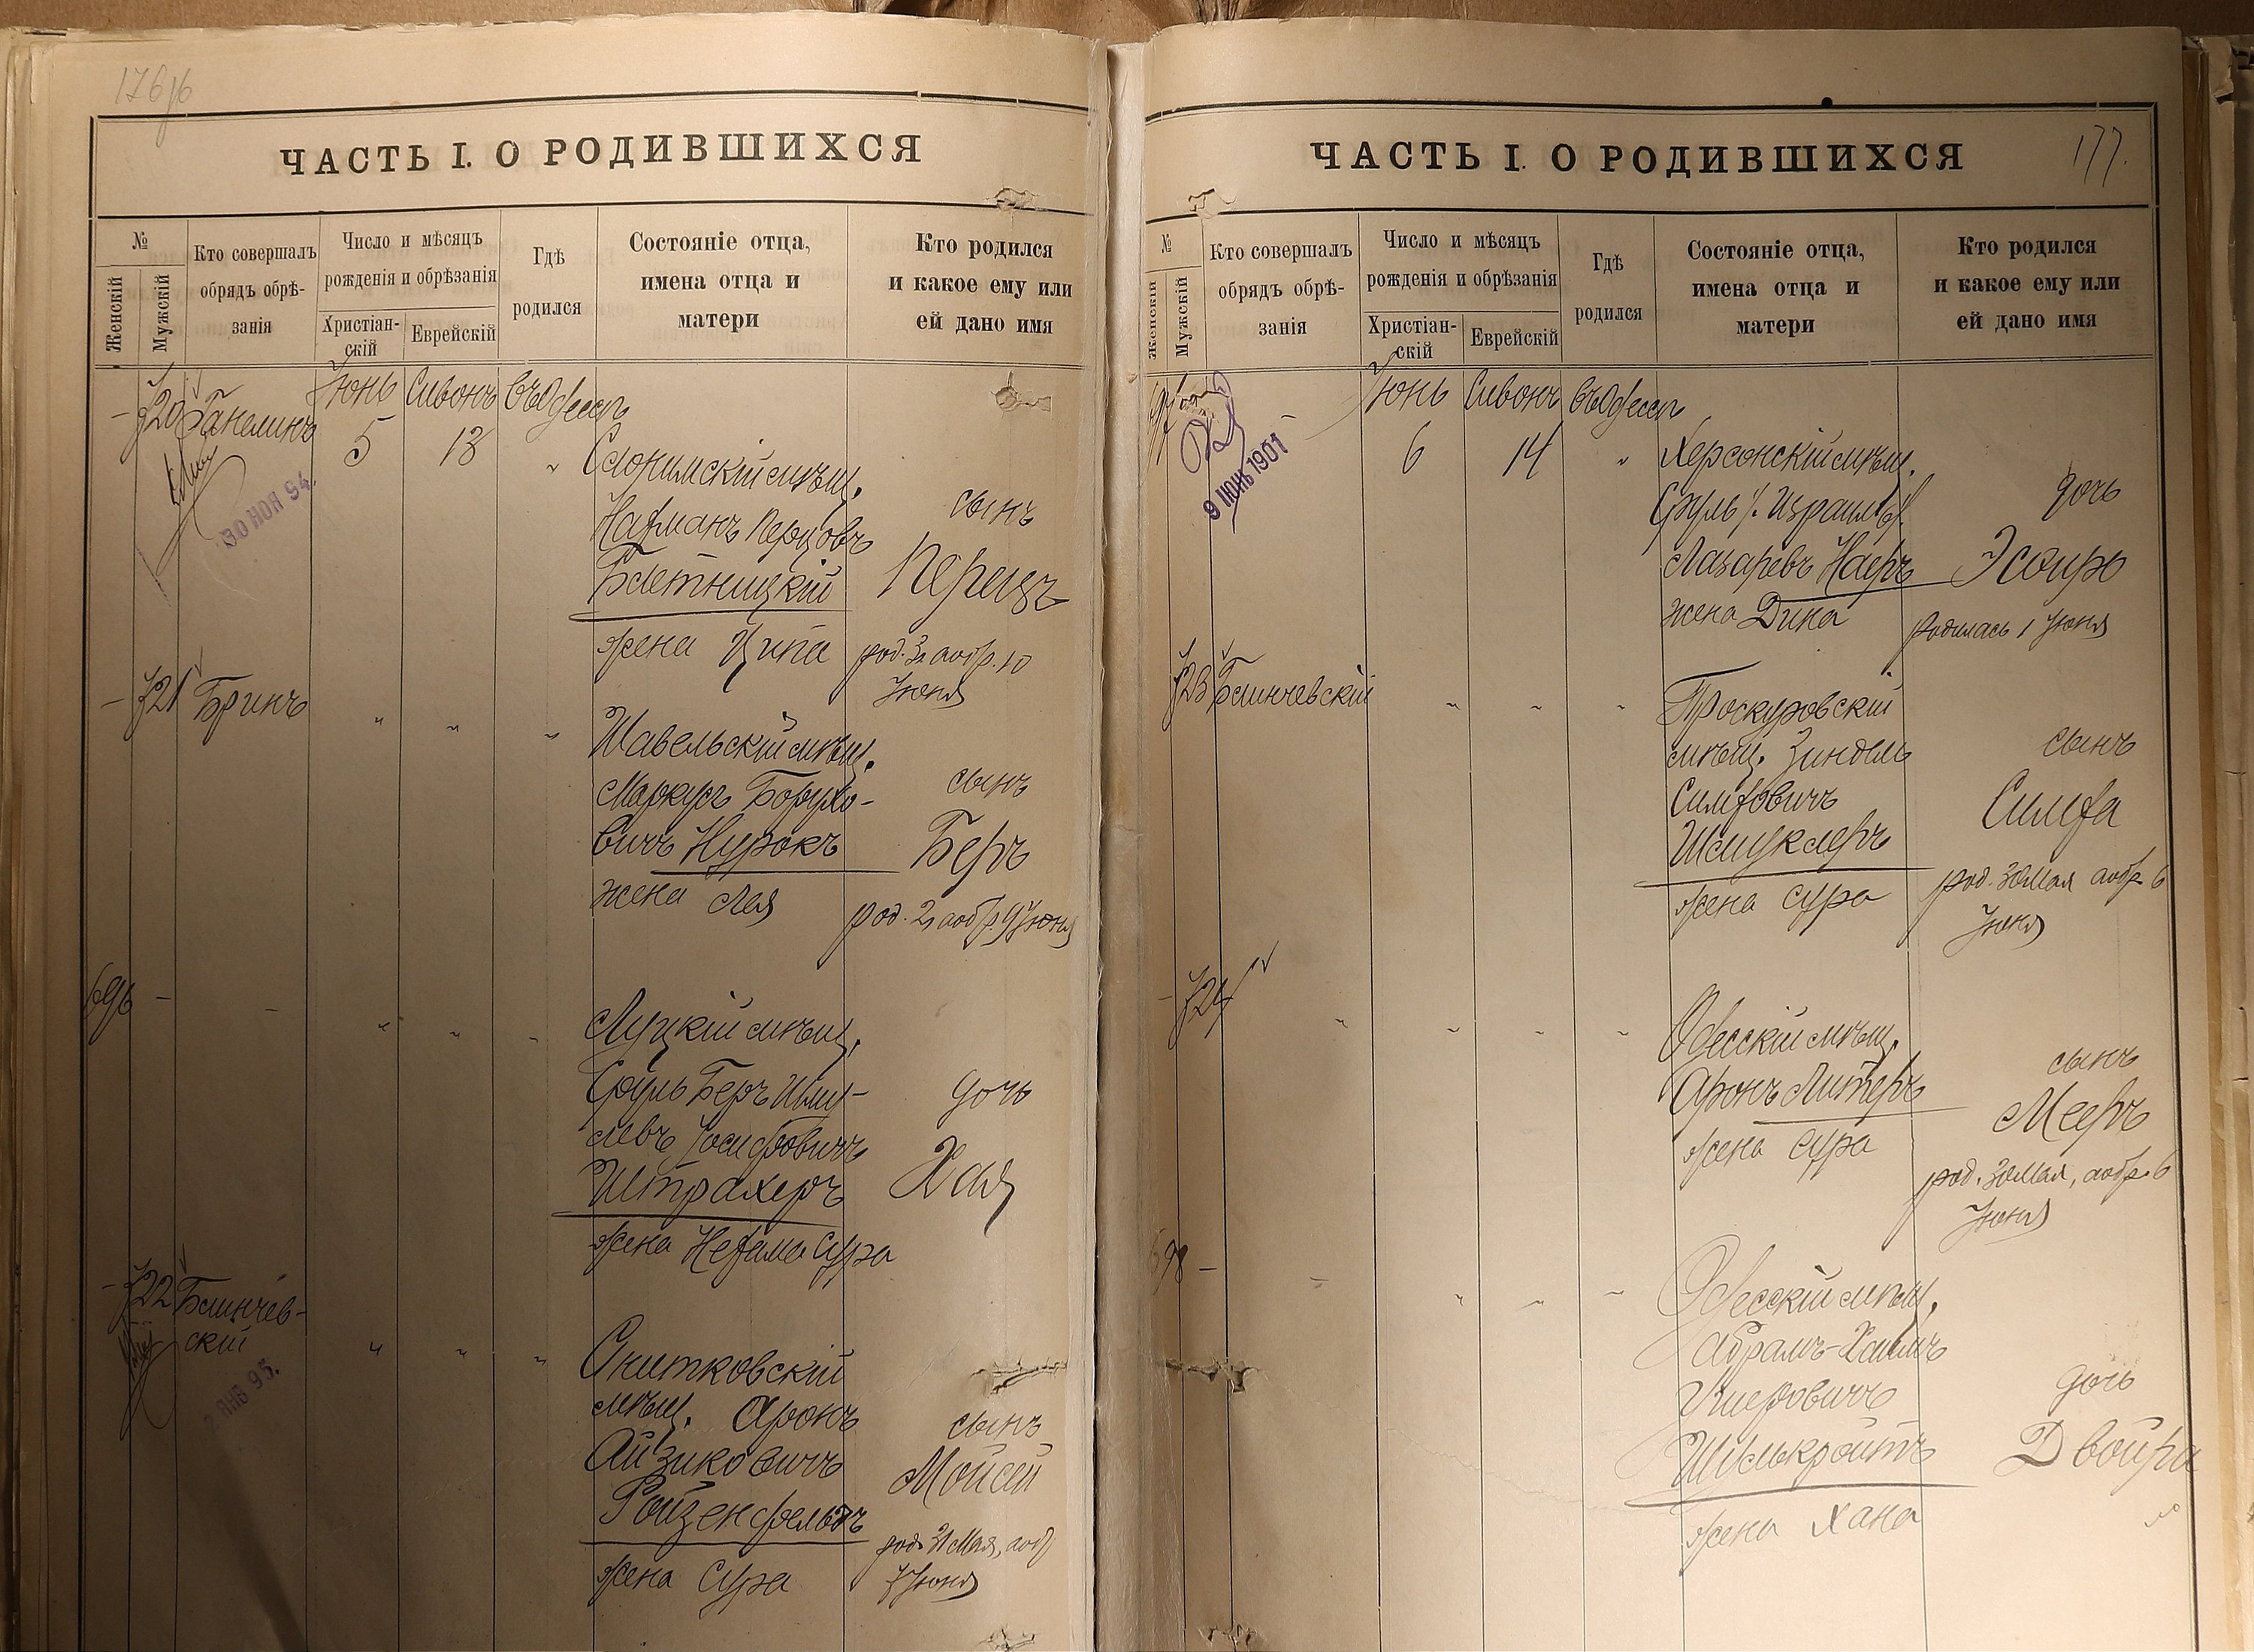 ЧАСТЬ I. О РОДИВШИХСЯ
№
Женскій
Мужскій
Кто совершалъ
обрядъ обрѣ-
занія
Число и мѣсяцъ
рожденія и обрѣзанія
Христіан-
скій
Еврейскій
Гдѣ
родился
Состояніе отца,
имена отца и
матери
Кто родился
и какое ему или
ей дано имя
Іюнь Сивонъ въ Одессѣ
– 720 Ганелинъ 5 13 „ Слонимскій мѣщ.
30 НОЯ 94.
Нахманъ Перцовъ сынъ
Блетницкій Перецъ
жена Ципа род. 3, а обр. 10
Іюня
– 721 Бринъ „ „ „ Шавельскій мѣщ.
Маркусъ Борухо- сынъ
вичъ Нурокъ Беръ
жена Лея род. 2, а обр. 9 Іюня
696 – – „ „ „ Луцкій мѣщ.
Сруль Беръ Шму- дочь
левъ Іосифовичъ
Штрахеръ Хая
жена Нехама Сура
– 722 Блинчев-
скій „ „ „ Снитковскій
ЯНВ 95.
мѣщ. Аронъ сынъ
Айзиковичъ Мойсей
Ройзенфельдъ
род. 31 Мая, а обр
7 Іюня
жена Сура
177.
ЧАСТЬ I. О РОДИВШИХСЯ
№
Женскій
Мужскій
Кто совершалъ
обрядъ обрѣ-
занія
Число и мѣсяцъ
рожденія и обрѣзанія
Христіан-
скій
Еврейскій
Гдѣ
родился
Состояніе отца,
имена отца и
матери
Кто родился
и какое ему или
ей дано имя
Іюнь Сивонъ въ Одессѣ
697 6 14 „ Херсонскій мѣщ.
9 ІЮНЬ 1901
Сруль /: Израиль :/ дочь
Лазаревъ Наеръ Эсѳирь
жена Дина родилась 1 Іюня
723 Блинчевскій „ „ „ Проскуровскій
мѣщ. Зиндель сынъ
Симховичъ Симха
Шмуклеръ
жена Сура род. 30 Мая а обр. 6
Іюня
– 724 „ „ „ „ Одесскій мѣщ.
сынъ
Аронъ Литеръ Мееръ
жена Сура
род. 30 Мая, а обр. 6
Іюня
698 – – „ „ „ Одесскій мѣщ.
Абрамъ-Хаимъ
дочь
Двойра
жена Хана